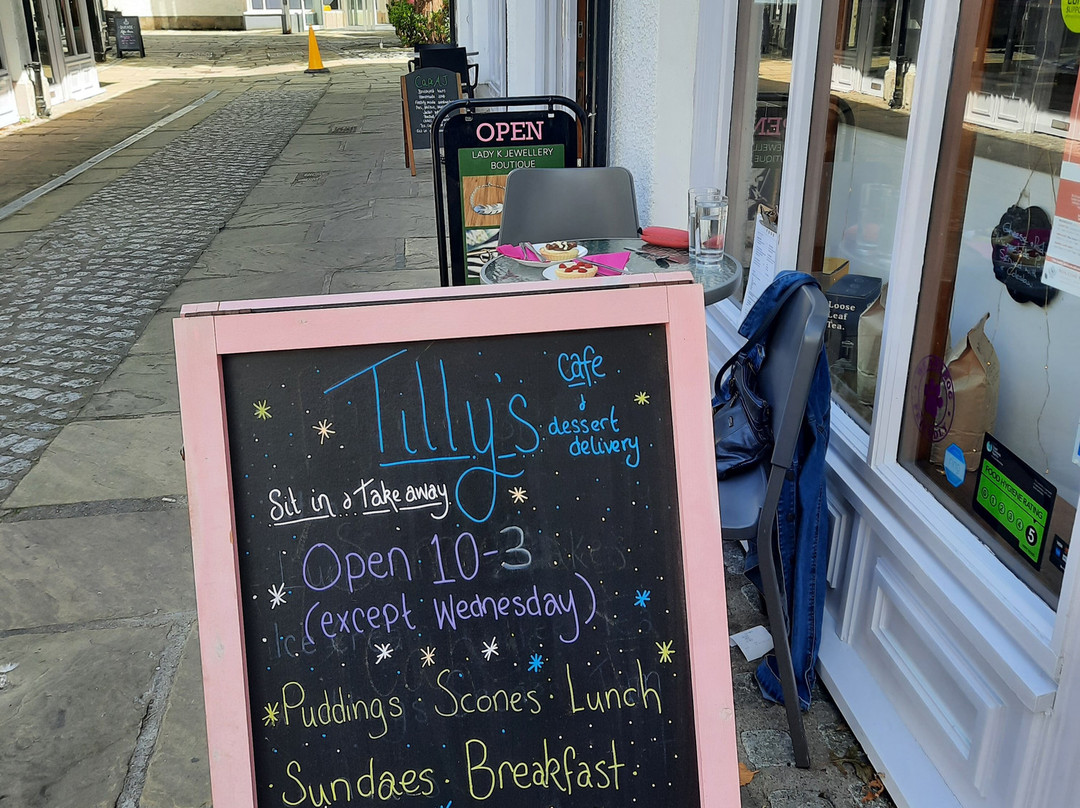 OPEN
LADY K JEWELLERY
BOUTIQUE
Tilly's
cafe
&
dessert
delivery
Sit in & Take away
Open 10-3
(except Wednesday)
Puddings · Scones · Lunch
Sundaes · Breakfast ·
Loose
Leaf
Tea.
FOOD HYGIENE RATING
0 1 2 3 4 5